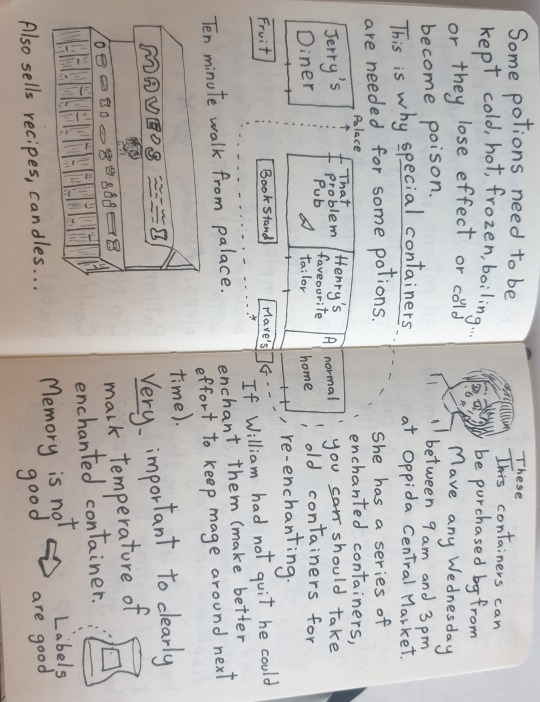 Some potions need to be
kept cold, hot, frozen, boiling...
or they lose effect or could
become poison.
This is why special containers
are needed for some potions.
Palace
Jerry's
Diner
That
problem
Pub
Henry's
faveourite
tailor
A normal
home
Fruit
Book Stand
Mave's
Ten minute walk from palace.
MAVE'S
Also sells recipes, candles...
These
This containers can
be purchased by from
Mave any Wednesday
between 9am and 3pm
at Oppida Central Market.
She has a series of
enchanted containers,
you can should take
old containers for
re-enchanting.
If William had not quit he could
enchant them (make better
effort to keep mage around next
time).
Very important to clearly
mark temperature of
enchanted container.
Memory is not
good
Labels
are good